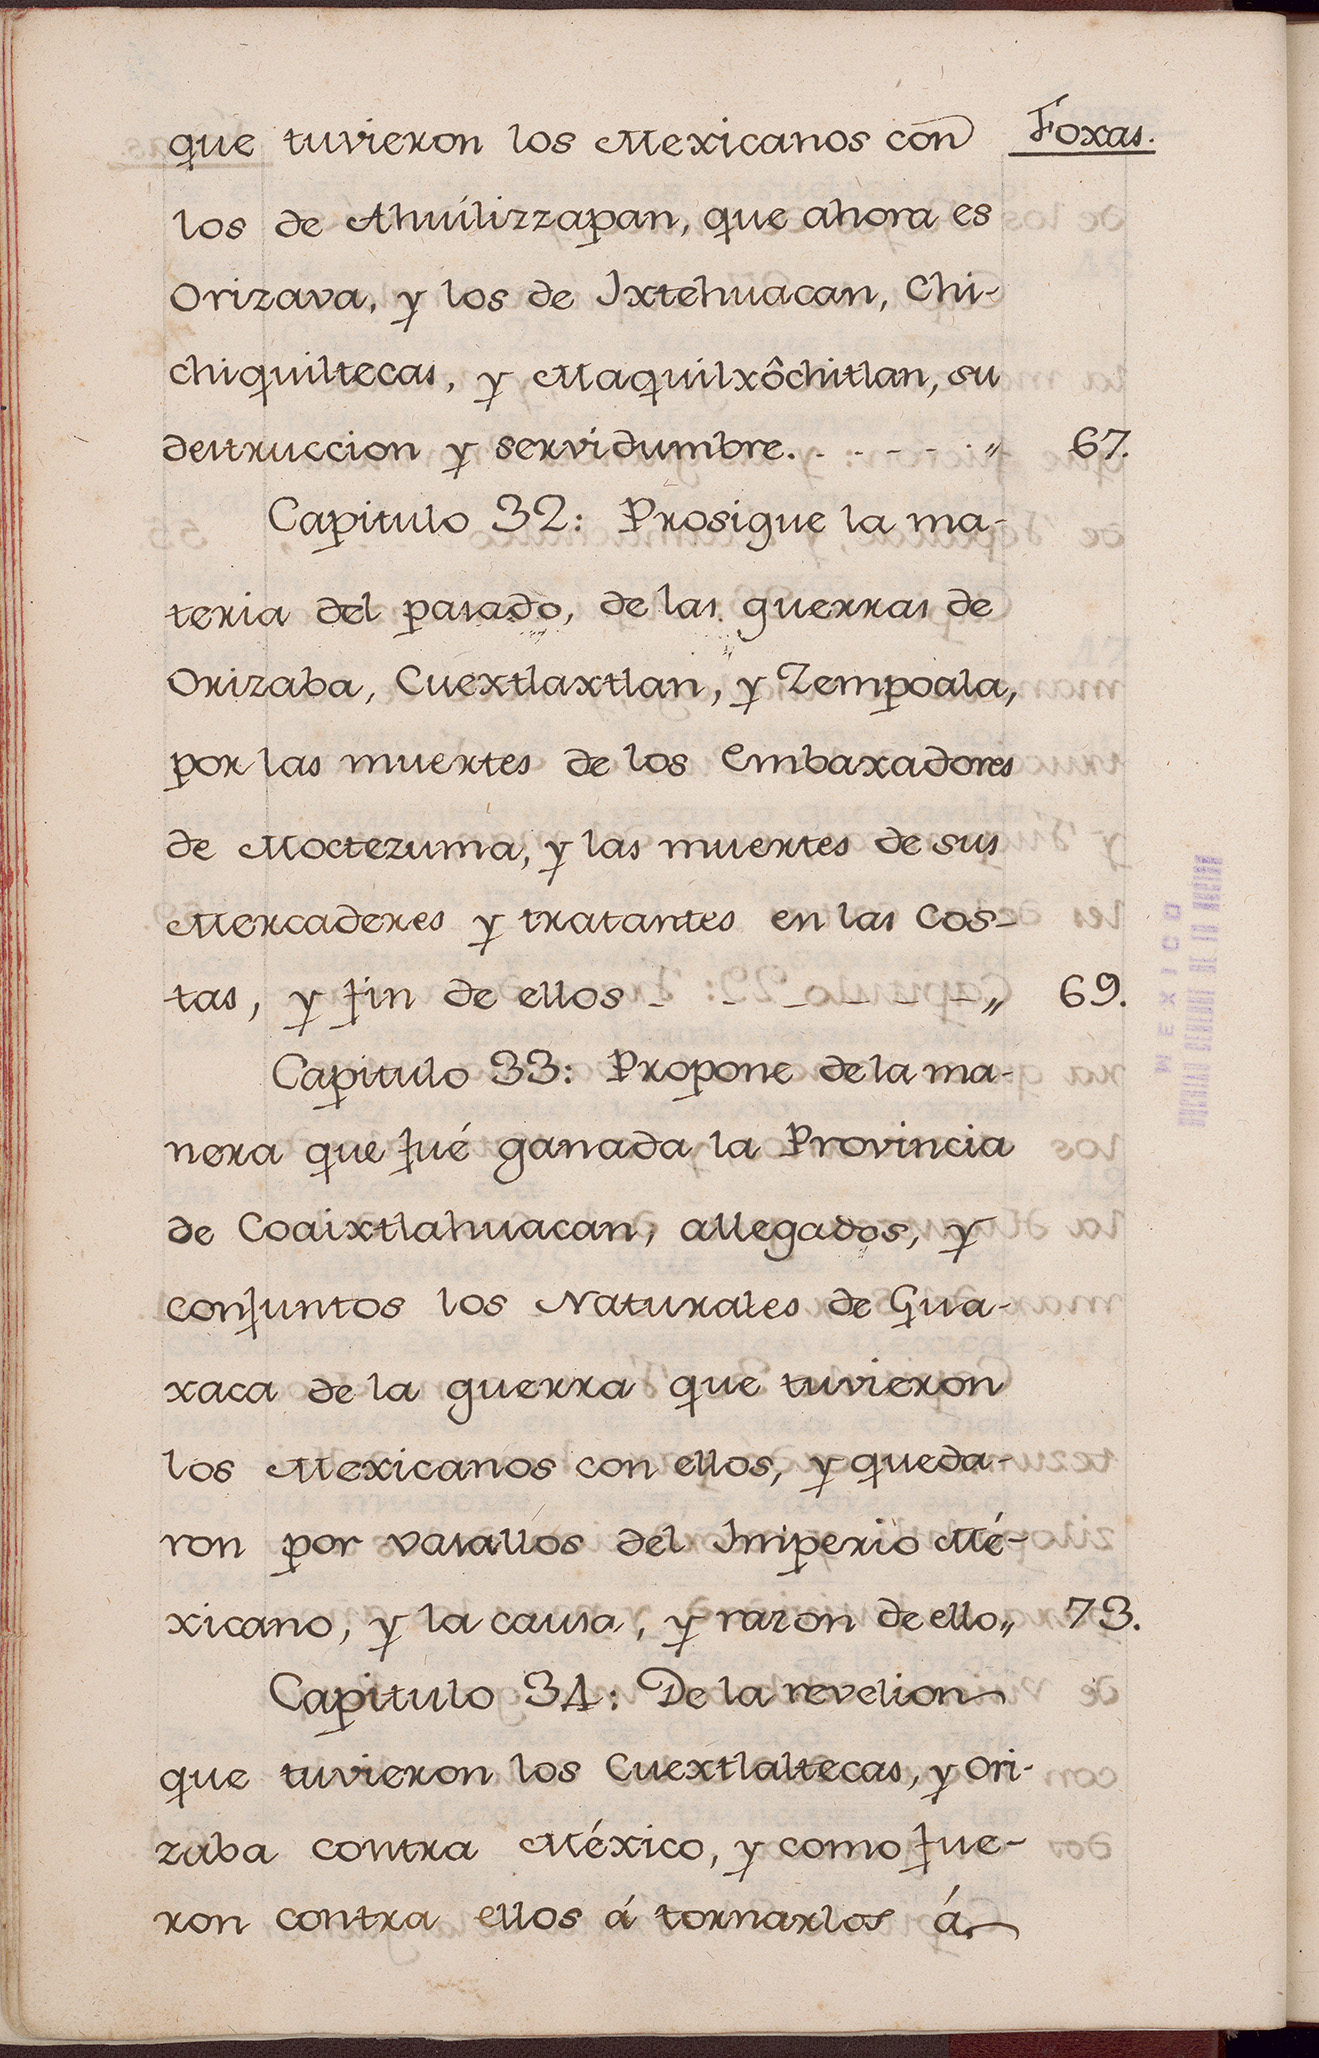 que tuvieron los Mexicanos con Foxas.
los de Ahuilizzapan, que ahora es
Orizava, y los de Ixtehuacan, Chi-
chiquiltecas, y Maquilxôchitlan, su
destruccion y servidumbre. . . - - - . „ 67.
Capitulo 32: Prosigue la ma-
teria del pasado, de las guerras de
Orizaba, Cuextlaxtlan, y Zempoala,
por las muertes de los Embaxadores
de Moctezuma, y las muertes de sus
Mercaderes y tratantes en las Cos-
tas, y fin de ellos - - - - - - „ 69.
Capitulo 33: Propone de la ma-
nera que fué ganada la Provincia
de Coaixtlahuacan, allegados, y
conjuntos los Naturales de Gua-
xaca de la guerra que tuvieron
los Mexicanos con ellos, y queda-
ron por vasallos del Imperio Mé-
xicano, y la causa, y razon de ello „ 73.
Capitulo 34: De la revelion
que tuvieron los Cuextlaltecas, y Ori-
zaba contra México, y como fue-
ron contra ellos á tornarlos á
ARCHIVO GENERAL DE LA NACION
MEXICO